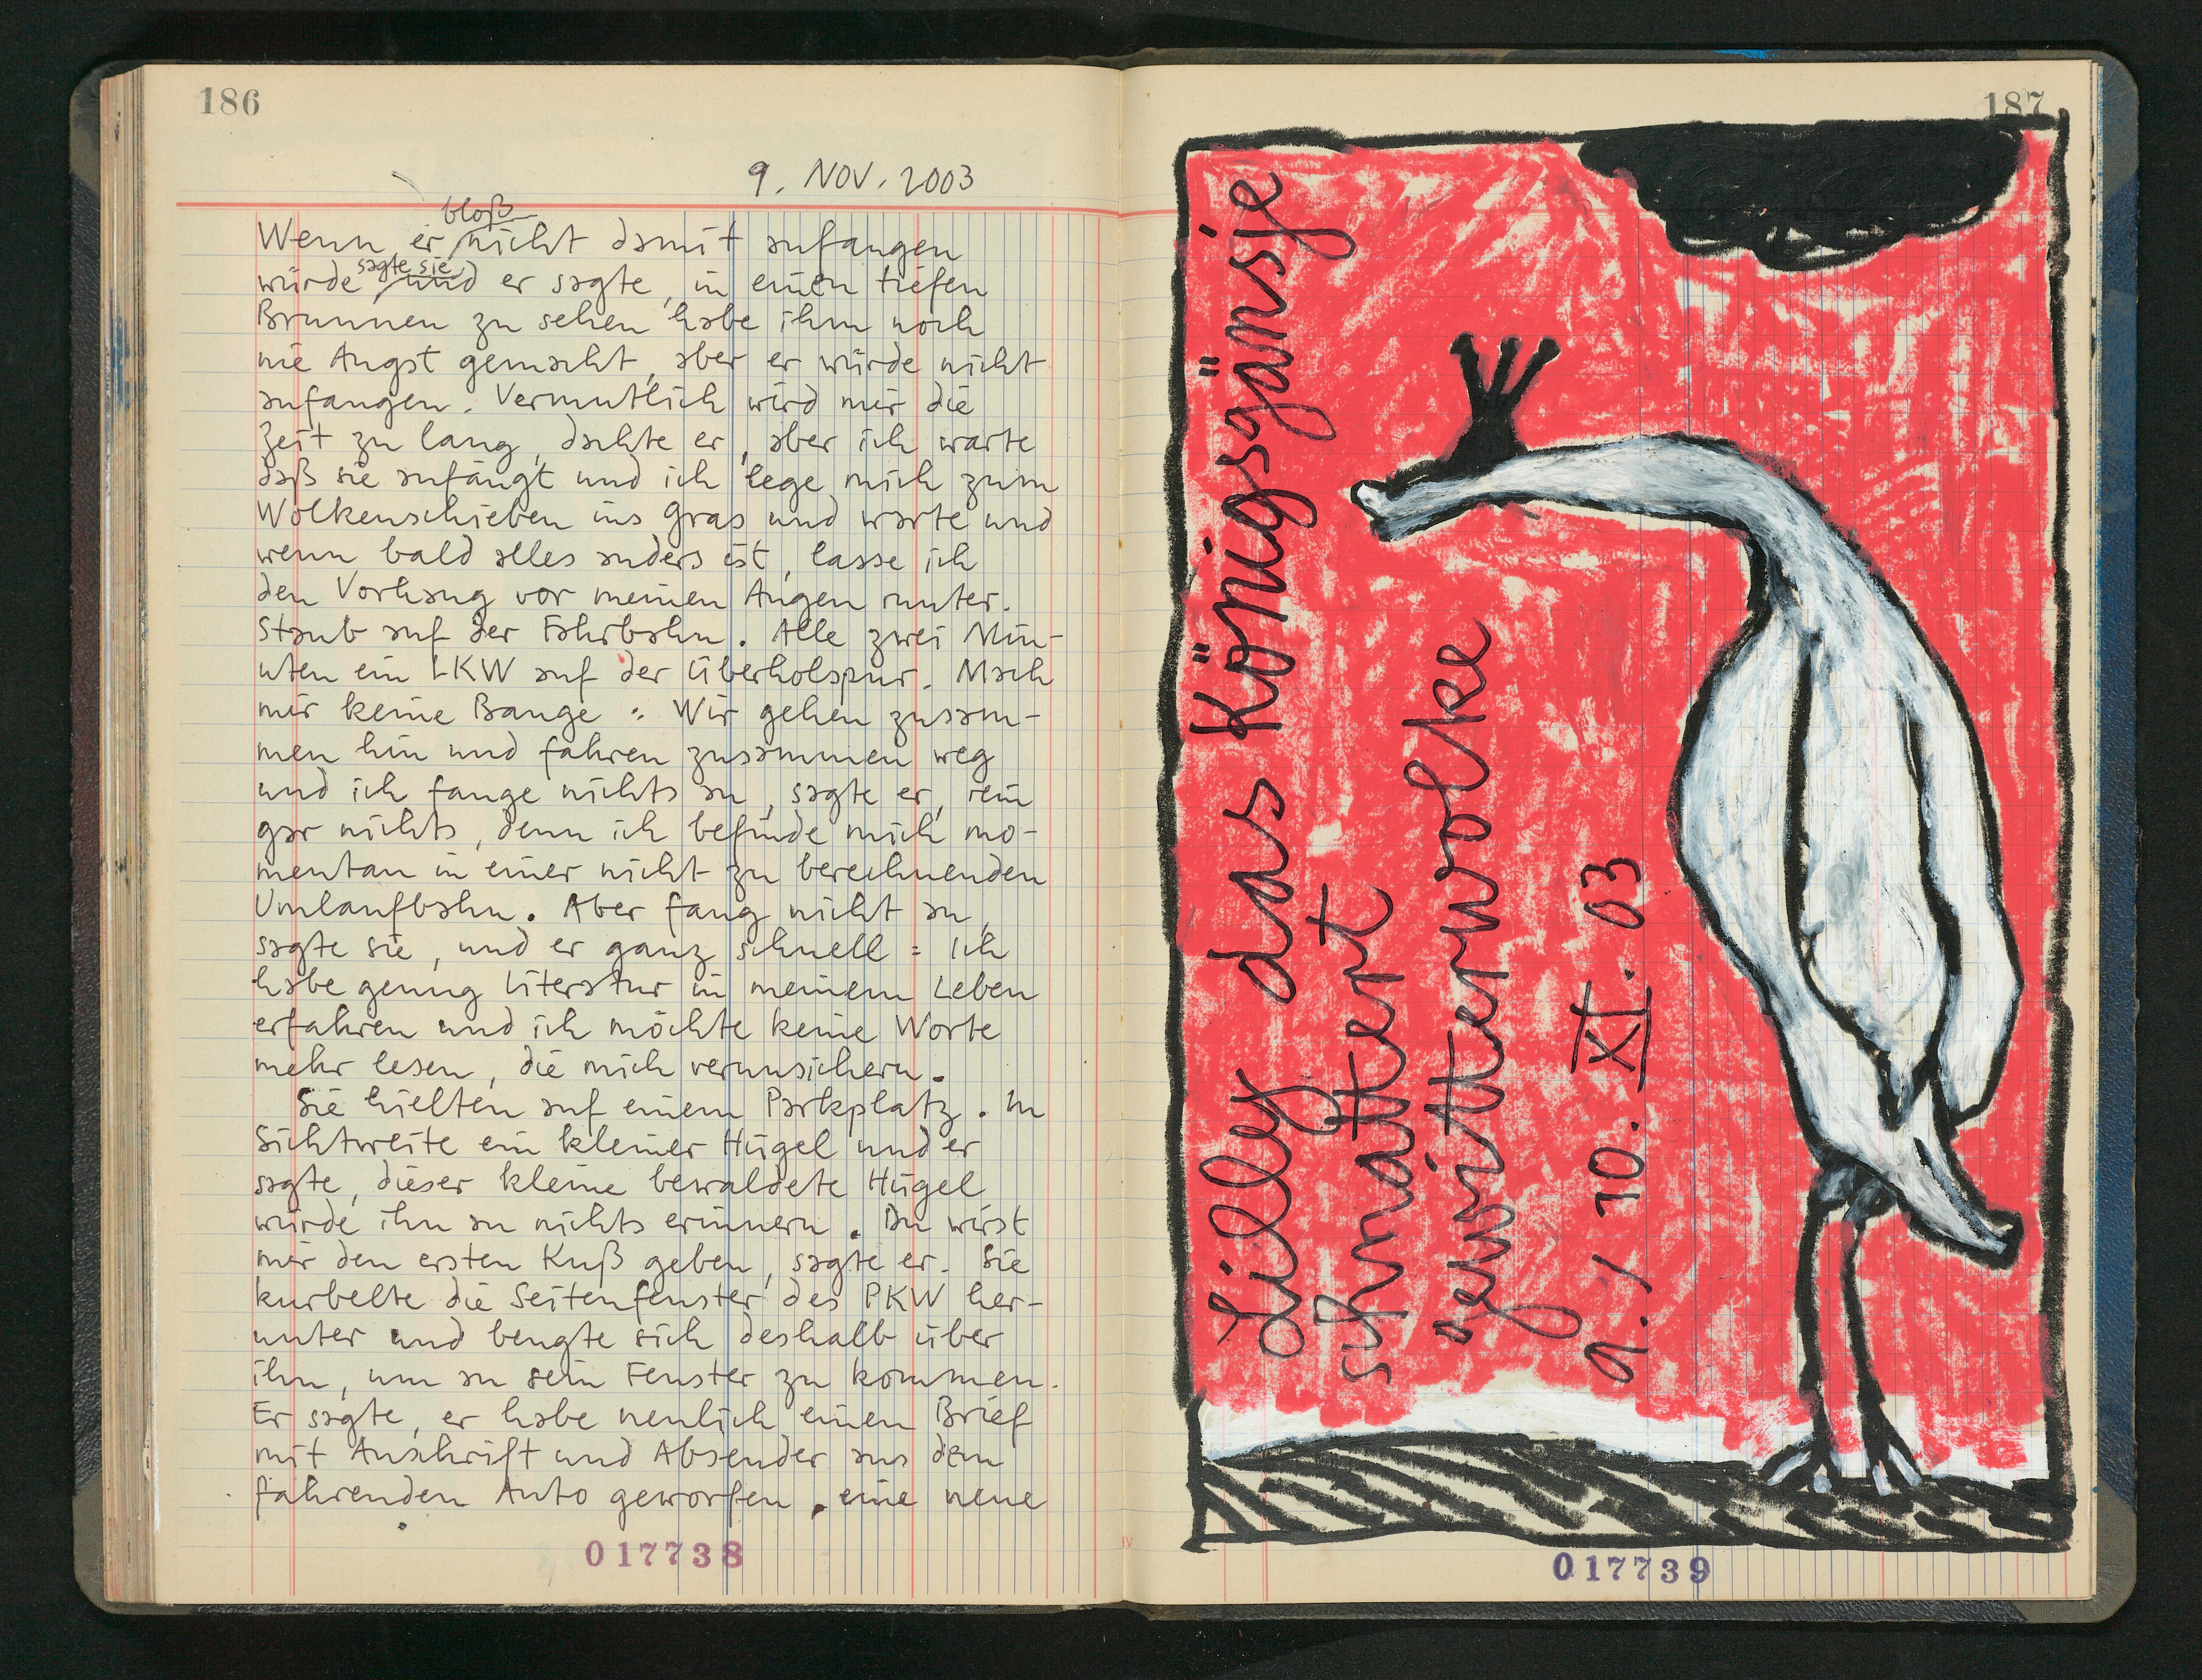 186
9. NOV. 2003
bloß
Wenn er nicht damit anfangen
sagte sie,
würde und er sagte, in einen tiefen
Brunnen zu sehen habe ihm noch
nie Angst gemacht, aber er würde nicht
anfangen. Vermutlich wird mir die
Zeit zu lang, dachte er, aber ich warte
daß sie anfängt und ich lege mich zum
Wolkenschieben ins Gras und warte und
wenn bald alles anders ist, lasse ich
den Vorhang vor meinen Augen runter.
Staub auf der Fahrbahn. Alle zwei Min-
uten ein LKW auf der Überholspur. Mach
mir keine Bange: Wir gehen zusam-
men hin und fahren zusammen weg
und ich fange nichts an, sagte er, rein
gar nichts, denn ich befinde mich mo-
mentan in einer nicht zu berechnenden
Umlaufbahn. Aber fang nicht an,
sagte sie, und er ganz schnell: Ich
habe genug Literatur in meinem Leben
erfahren und ich möchte keine Worte
mehr lesen, die mich verunsichern.
Sie hielten auf einem Parkplatz. In
Sichtweite ein kleiner Hügel und er
sagte, dieser kleine bewaldete Hügel
würde ihn an nichts erinnern. Du wirst
mir den ersten Kuß geben, sagte er. Sie
kurbelte die Seitenfenster des PKW her-
unter und beugte sich deshalb über
ihn, um an sein Fenster zu kommen.
Er sagte, er habe neulich einen Brief
mit Anschrift und Absender aus dem
fahrenden Auto geworfen, eine neue
017738
187
Lilly das Königsgänsje
schnattert
gewitterwolke
9./10. XI. 03
017739